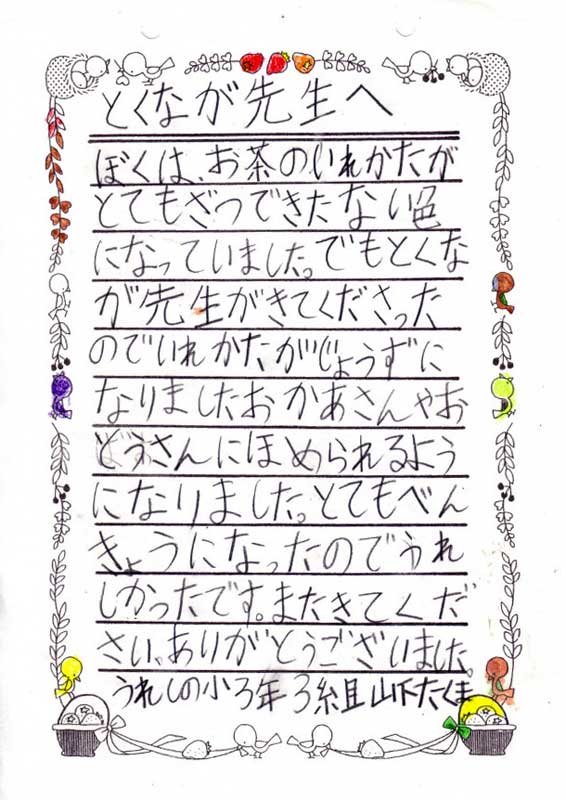 とくなが先生へ
ぼくは、お茶のいれかたが
とてもざつできたない色
になっていました。でもとくな
が先生がきてくださった
のでいれかたがじょうずに
なりましたおかあさんやお
どうさんにほめられるよう
になりました。とてもべん
きょうになったのでうれ
しかったです。またきてくだ
さい。ありがとうございました。
うれしの小3年3組山下たくま